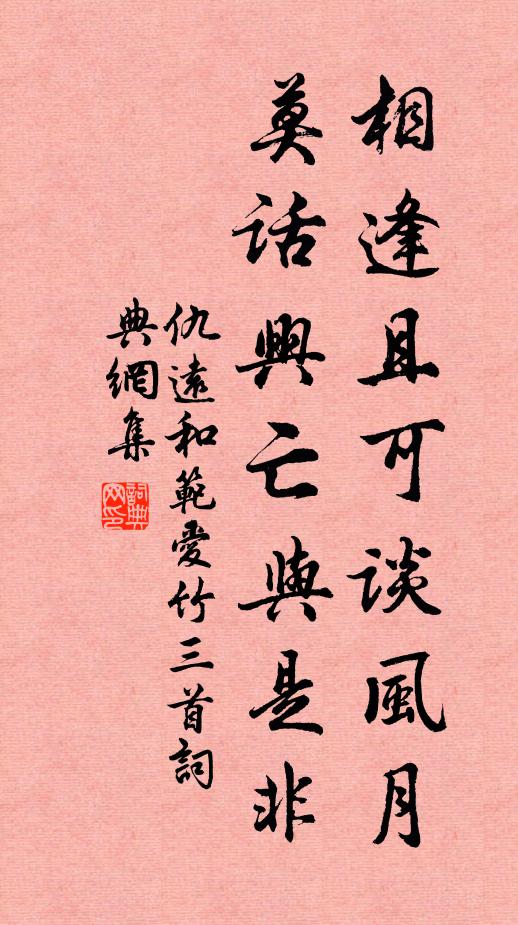 相逢且可談風月
莫話興亡與是非
仇遠和範愛竹三首詞
典網集
詞典
网印